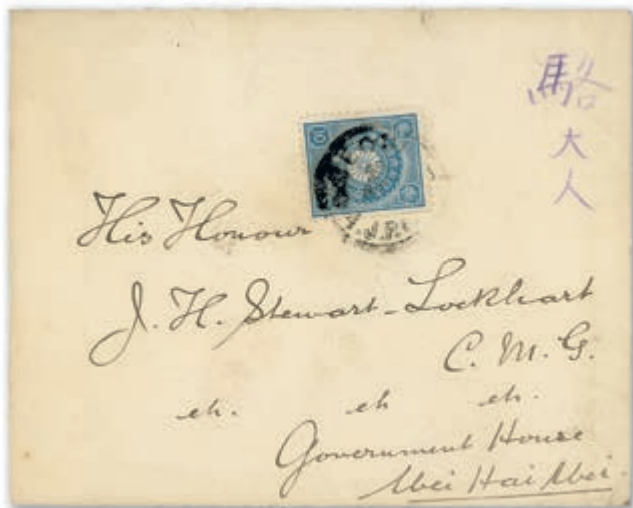 駱大人
His Honour
J. H. Stewart-Lockhart
C. M. G.
etc. etc etc.
Government House
Wei Hai Wei.
10
J.P.O